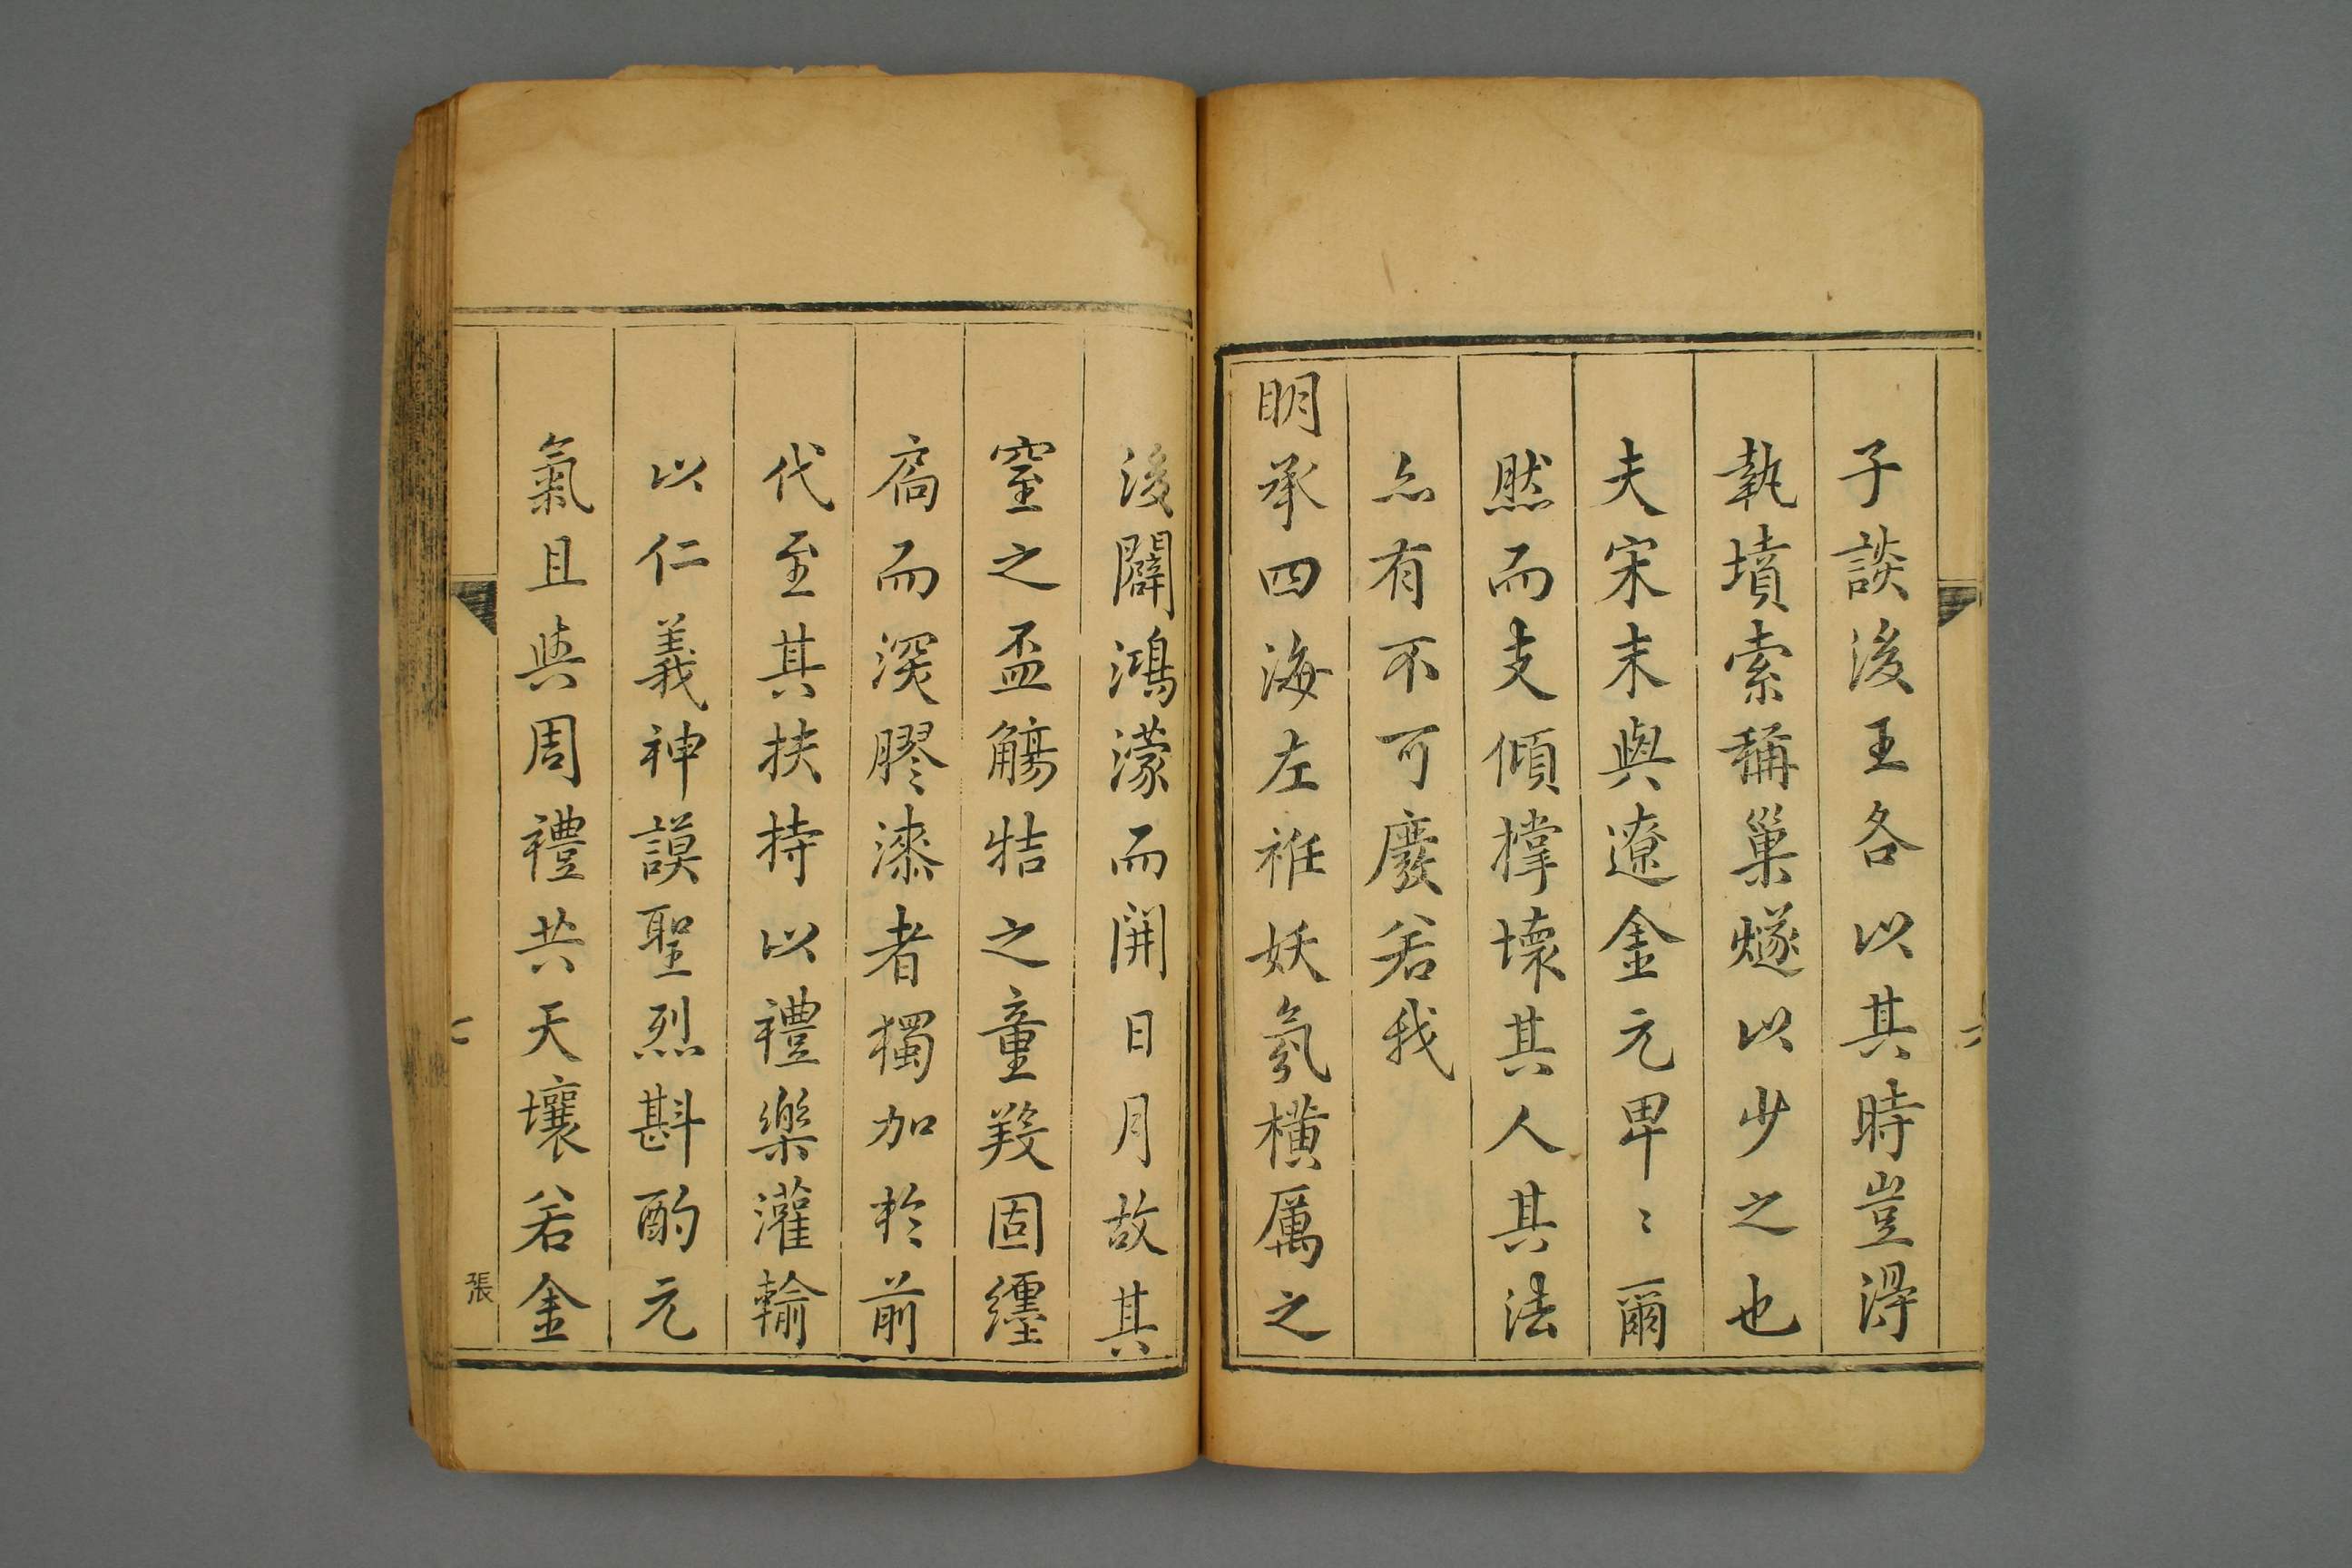 子談後王各以其時豈得
執墳索稱巢燧以少之也
夫宋末與遼金元卑〻爾
然而支傾撑壞其人其法
亦有不可廢若我
明承四海左袵妖氛橫厲之
後闢鴻濛而開日月故其
窒之盃觴牿之童羖固纏
裔而深膠漆者獨加於前
代至其扶持以禮樂灌輸
以仁義神謨聖烈斟酌元
氣且與周禮共天壤若金
張